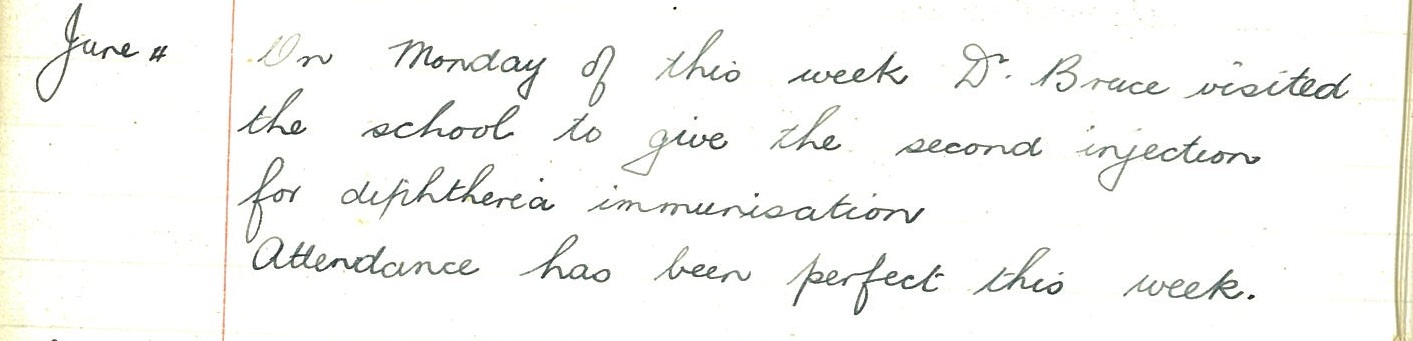 June 4 On Monday of this week Dr. Bruce visited
the school to give the second injection
for diphtheria immunisation
Attendance has been perfect this week.